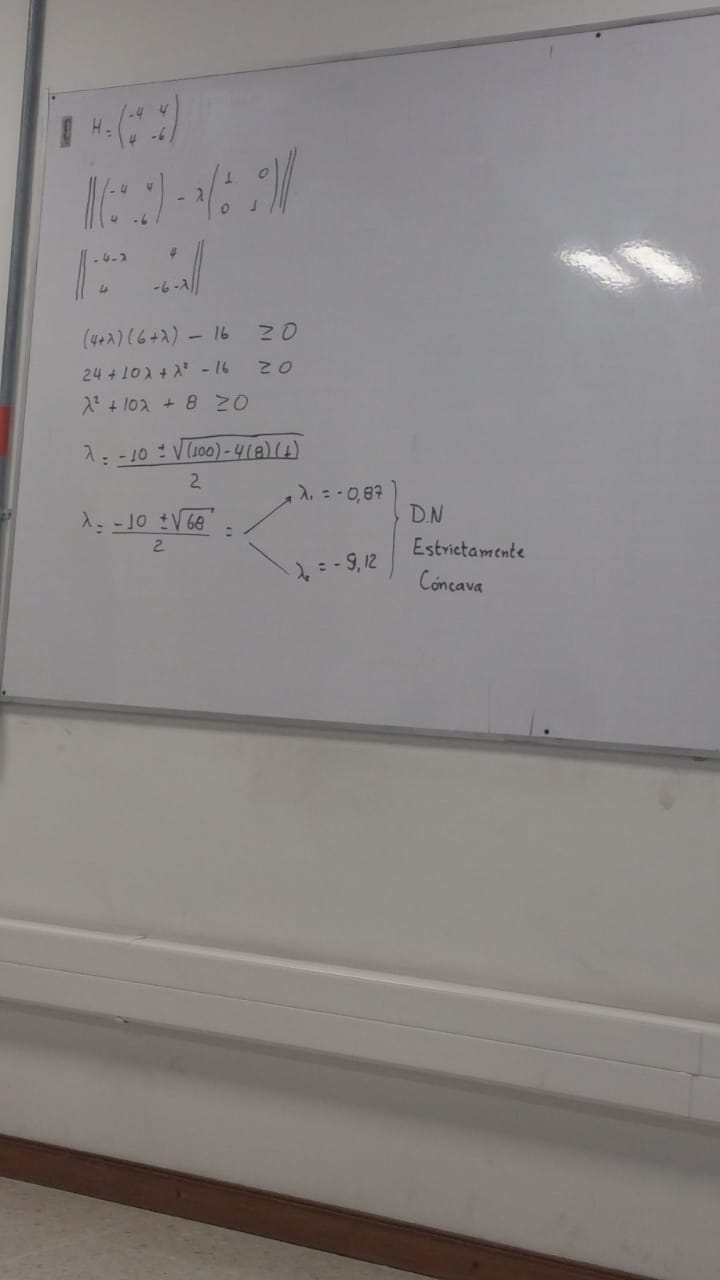 H = (-4 4
4 -6)
||(-4 4
4 -6) - λ(1 0
0 1)||
||-4-λ 4
4 -6-λ||
(4+λ)(6+λ) - 16 ≥ 0
24 + 10λ + λ² - 16 ≥ 0
λ² + 10λ + 8 ≥ 0
λ = -10 ± √(100) - 4(8)(1)
2
λ = -10 ± √68 =
2
λ₁ = -0,87
λ₂ = -9,12
D.N
Estrictamente
Cóncava